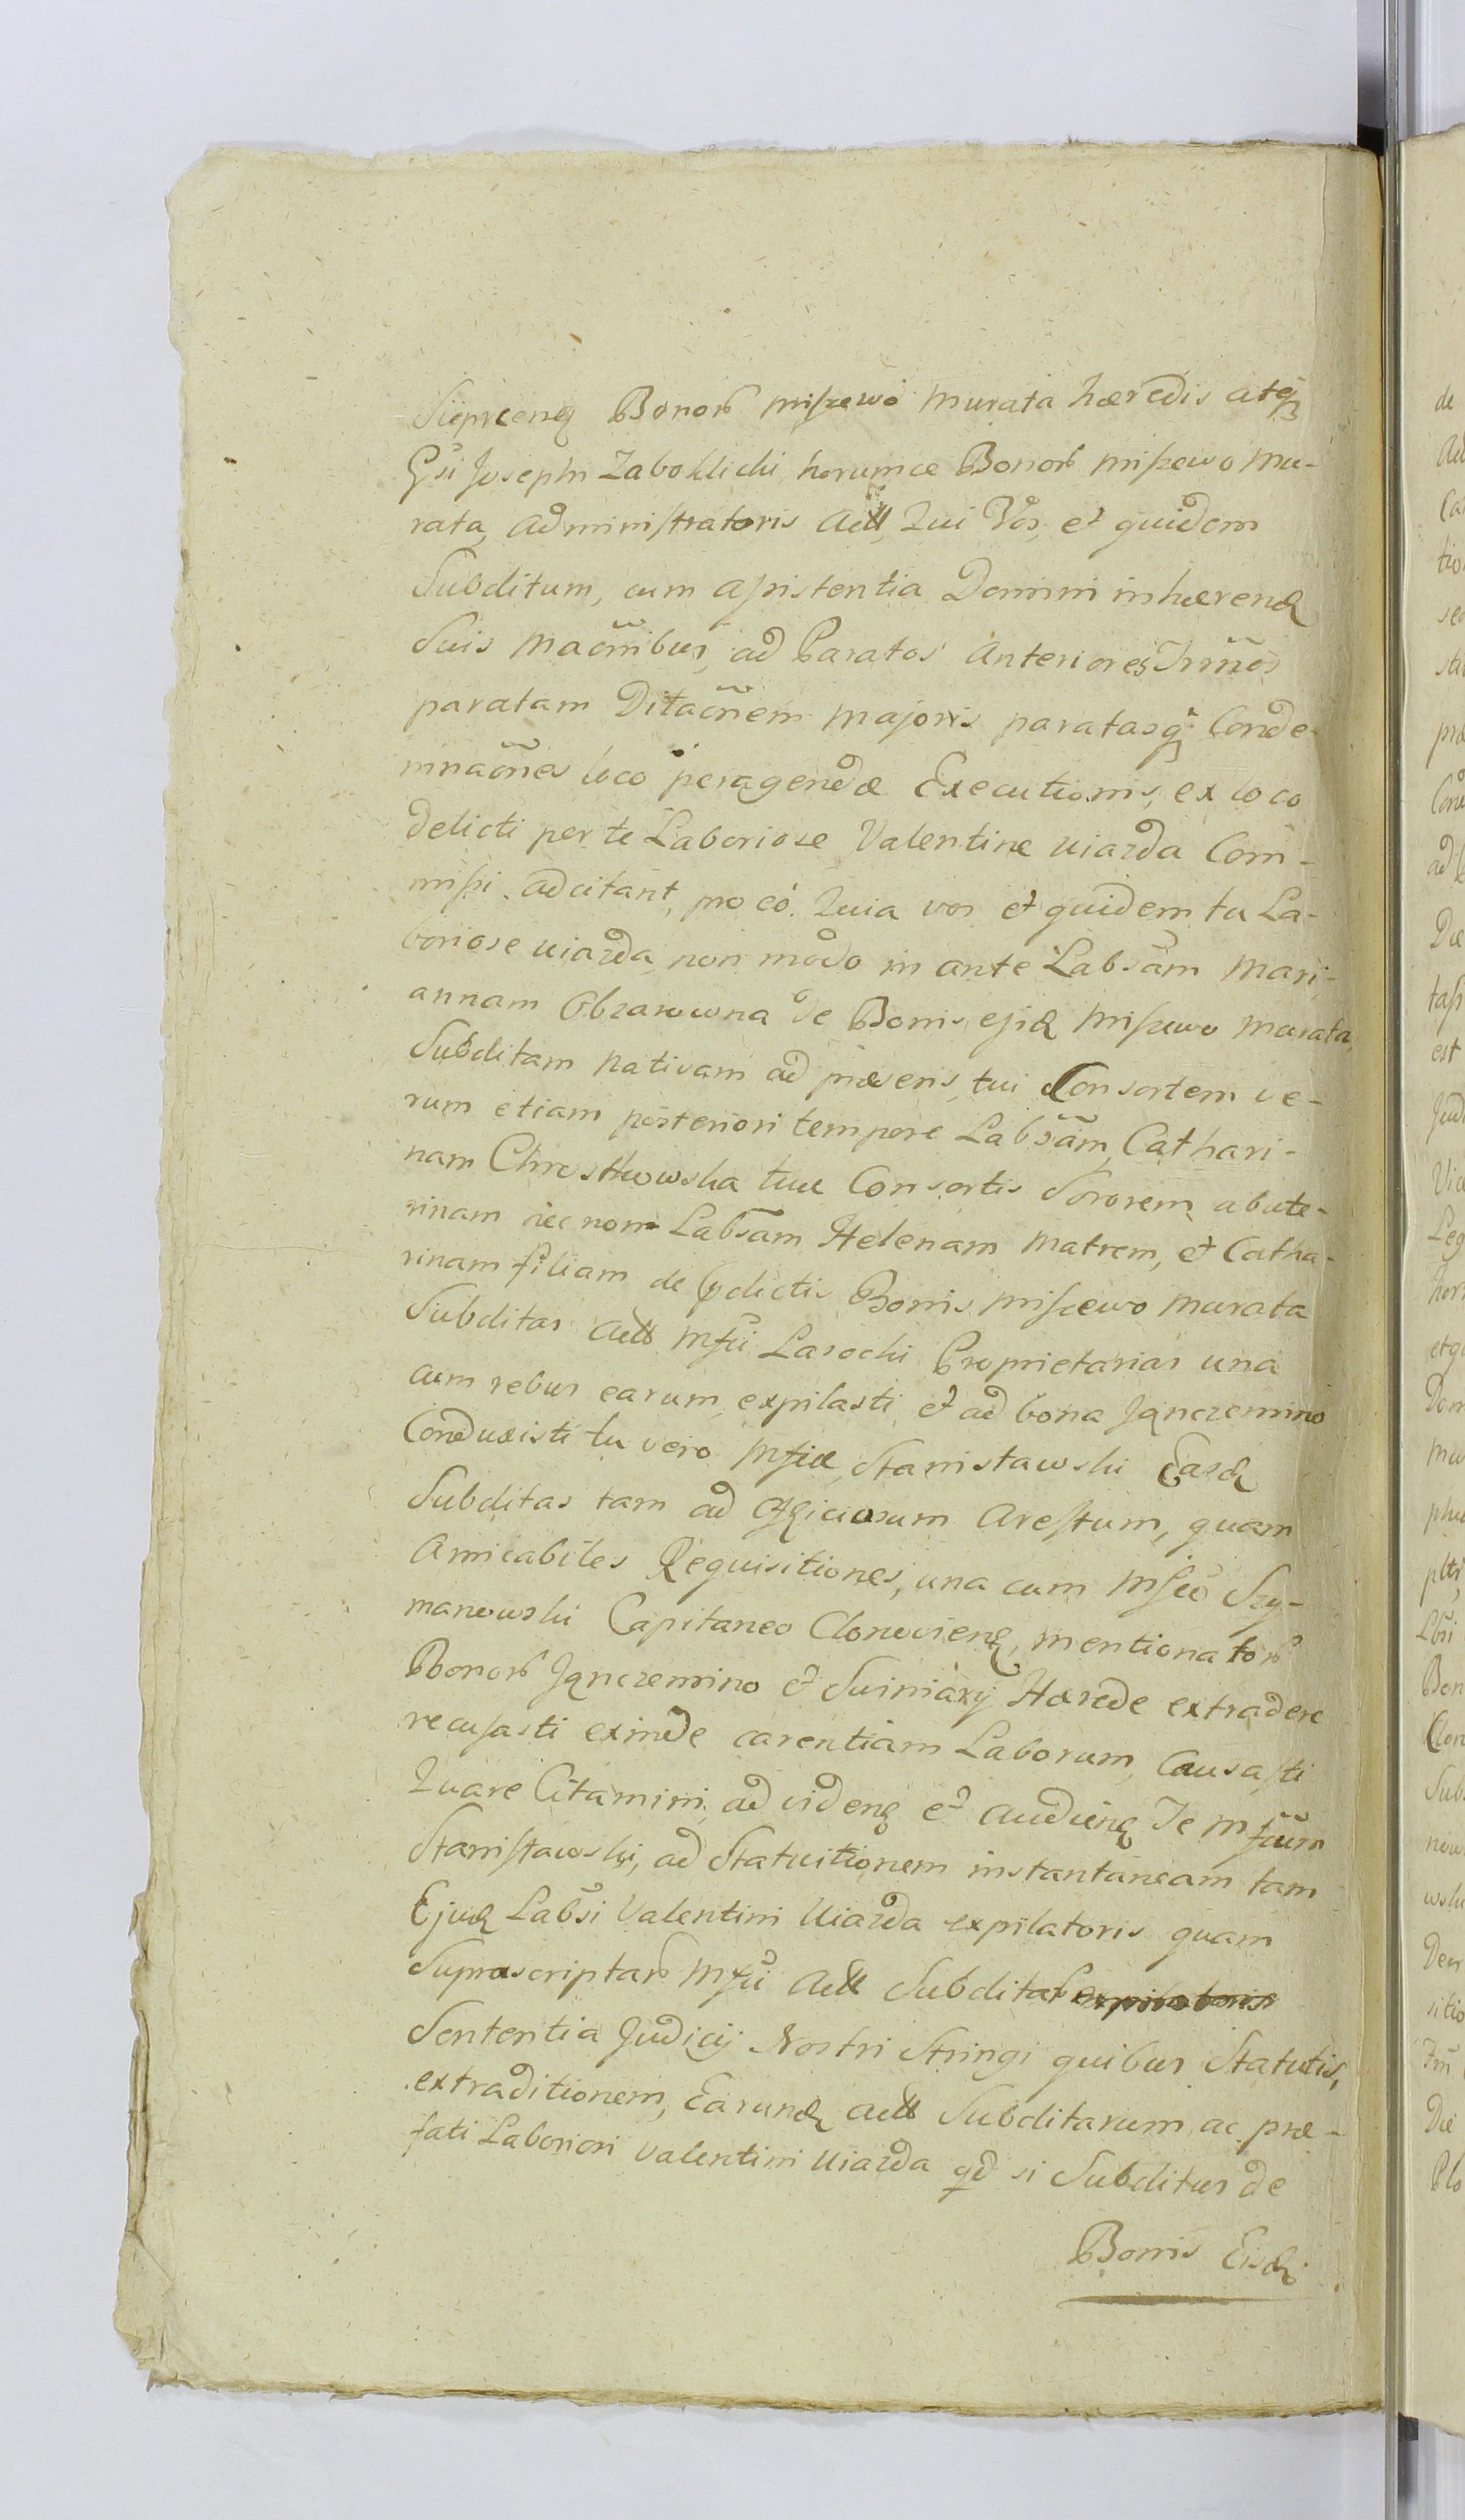 Sieprcens Bonorb Miszewo Murata hæredis atq̃
Gsi Josephi Zaboklicki horumce Bonorb Miszewo Mu-
rata, Administratoris Actt, Qui Vos, et quidem
Subditum, cum assistentia Domini inhærend
Suis Maõnibus, ad Paratos Anteriores Trños
paratam Ditaõnem Majoris paratasq̃ Conde-
mnaõnes loco peragendæ Executionis, ex loco
delicti per te Laboriose Valentine Uiazda Com-
missi adcitant, pro eo. Quia vos et quidem tu La-
boriose Uiazda, non modo in ante Labsam Mari-
annam Obzarowna de Bonis ejsd Miszewo Murata,
Subditam nativam ad præsens, tui Consortem ve-
rum etiam posteriori tempore Labsam, Cathari-
nam Chrostkowska tuæ Consortis Sororem, abute-
rinam nec non Labsam Helenam Matrem, et Catha-
rinam filiam de pdictis Bonis Miszewo Murata
Subditas Actt Mfci Lasocki Proprietarias una
cum rebus earum, expilasti, et ad bona Jqnczemino
Conduxisti tu vero Mfice, Stanisławski Easd
Subditas tam ad Officiosum Arestum, quam
Amicabiles Requisitiones, una cum Mfco Szy-
manowski Capitaneo Clonoviens, mentionatorb
Bonorb Jqnczemino et Swiniary Hærede extradere
recusasti exinde carentiam Laborum, Causasti
Quare Citamini, ad videnđ et audienđ Te Mfcum
Stanisławski, ad Statuitionem instantaneam tam
Ejusd Labsi Valentini Uiazda expilatoris quam
Suprascriptarb Mfci Actt Subditarb expilatoris
Sententia Judicij Nostri Stringi quibus Statutis,
extraditionem, Earund Actt Subditarum, ac præ-
fati Laboriosi Valentini Uiazda qd si Subditus de
Bonis Eisd
de
Ad
Ca
tio
se
præ
ad
De
est
Jud
Leg
etq
Dom
Mu
Bon
Clon
Sub
now
wsk
Decr
sitio